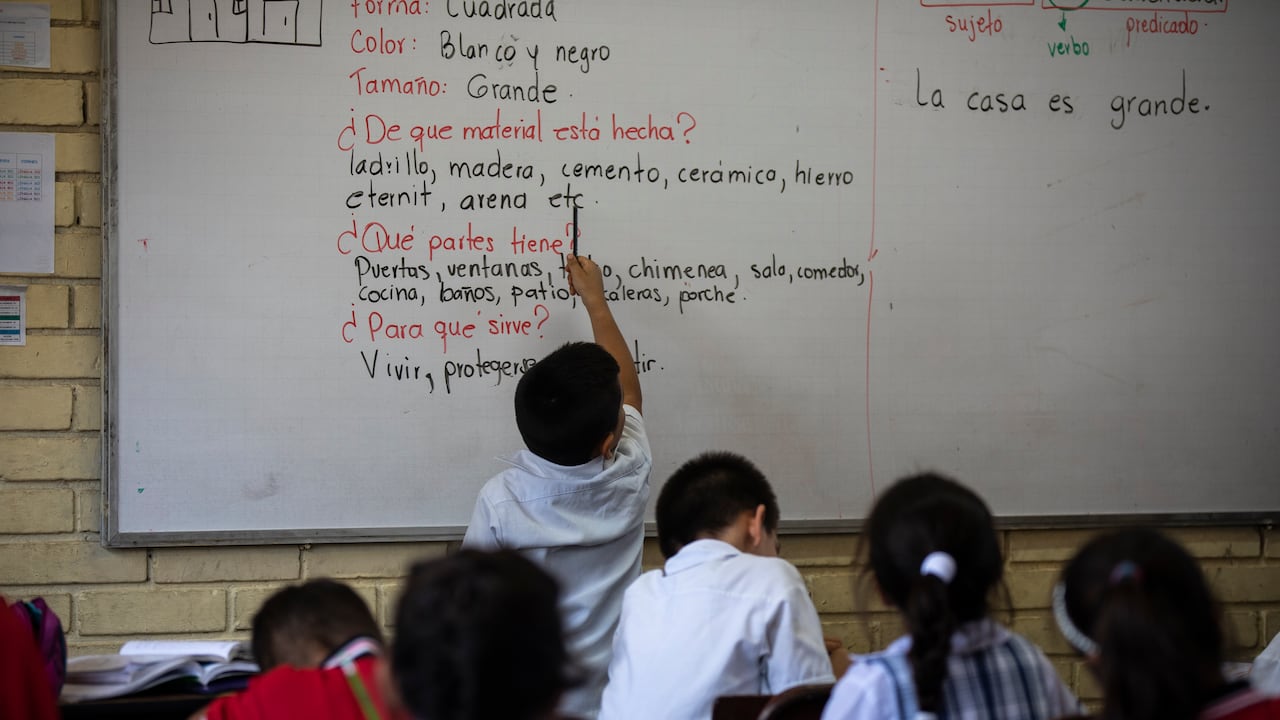 forma: Cuadrada
Color: Blanco y negro
Tamaño: Grande.
¿De que material está hecha?
ladrillo, madera, cemento, cerámica, hierro
eternit, arena etc.
¿Qué partes tiene?
Puertas, ventanas, chimenea, sala, comedor,
cocina, baños, patio, porche.
¿Para qué sirve?
Vivir, protegerse
sujeto
verbo
predicado.
La casa es grande.